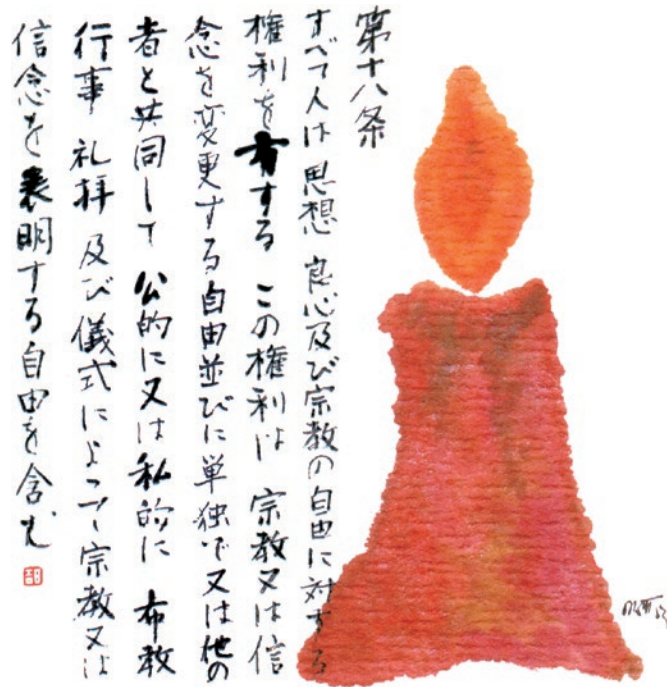 第十八条
すべて人は 思想 良心及び宗教の自由に対する
権利を有する この権利は 宗教又は信
念を変更する自由並びに単独で又は他の
者と共同して 公的に又は私的に 布教
行事 礼拝 及び儀式によって 宗教又は
信念を表明する自由を含む